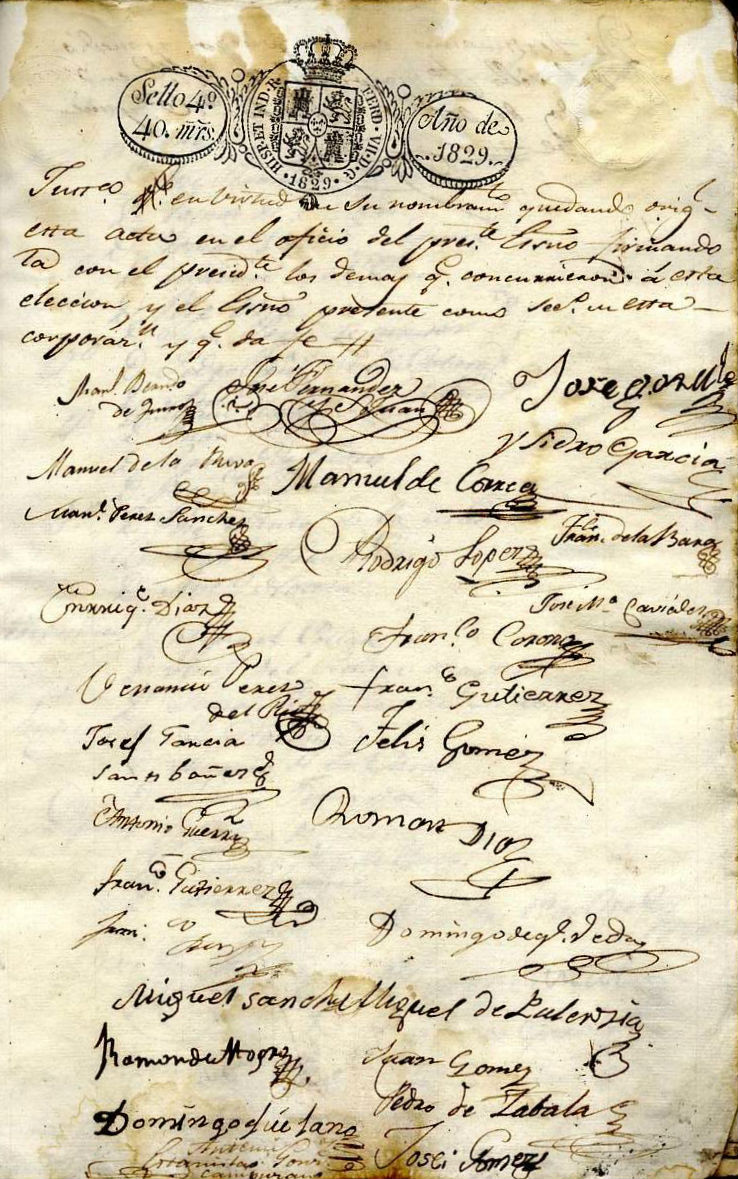 Sello 4º
40. mrs.
HISP. ET IND. R. FERD. VII. D. G.
1829
Año de
1829.
en virtud de su nombramto quedando orig.l
esta acta en el oficio del preste Essno firmando
la con el presidte los demas q.e concurrieron á esta
eleccion, y el Essno presente como Seco de esta
corporacn y q.e da fe
Manl
José Fernandez
Jose Gonzalez
Ysidro Garcia
Manuel de la Riva
Manuel de Correa
Manl Perez Sanchez
Rodrigo Lopez
Franco de la Bara
Enrriqe Diaz
Jose Ma Caviedes
Franco Corona
Venancio Perez
del Rio
Franco Gutierrez
Josef Garcia
Santibañez
Felis Gomez
Antonio Guerra
Roman Diaz
Franco Gutierrez
Domingo de
Miguel Sanchez
Miguel de Palencia
Ramon de
Juan Gomez
Pedro de Zabala
Domingo
Josei Gomez
Antonio
Estanislao
Campuzano